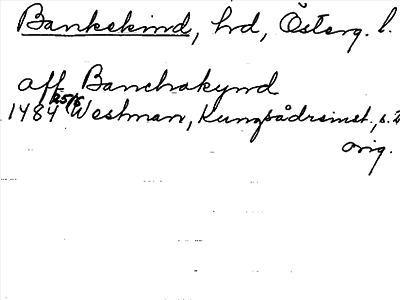 Bankekind, hd, Österg. l.
aff Banchakynd
1484 25/5 Westman, Kungsådreinst., s.
orig.